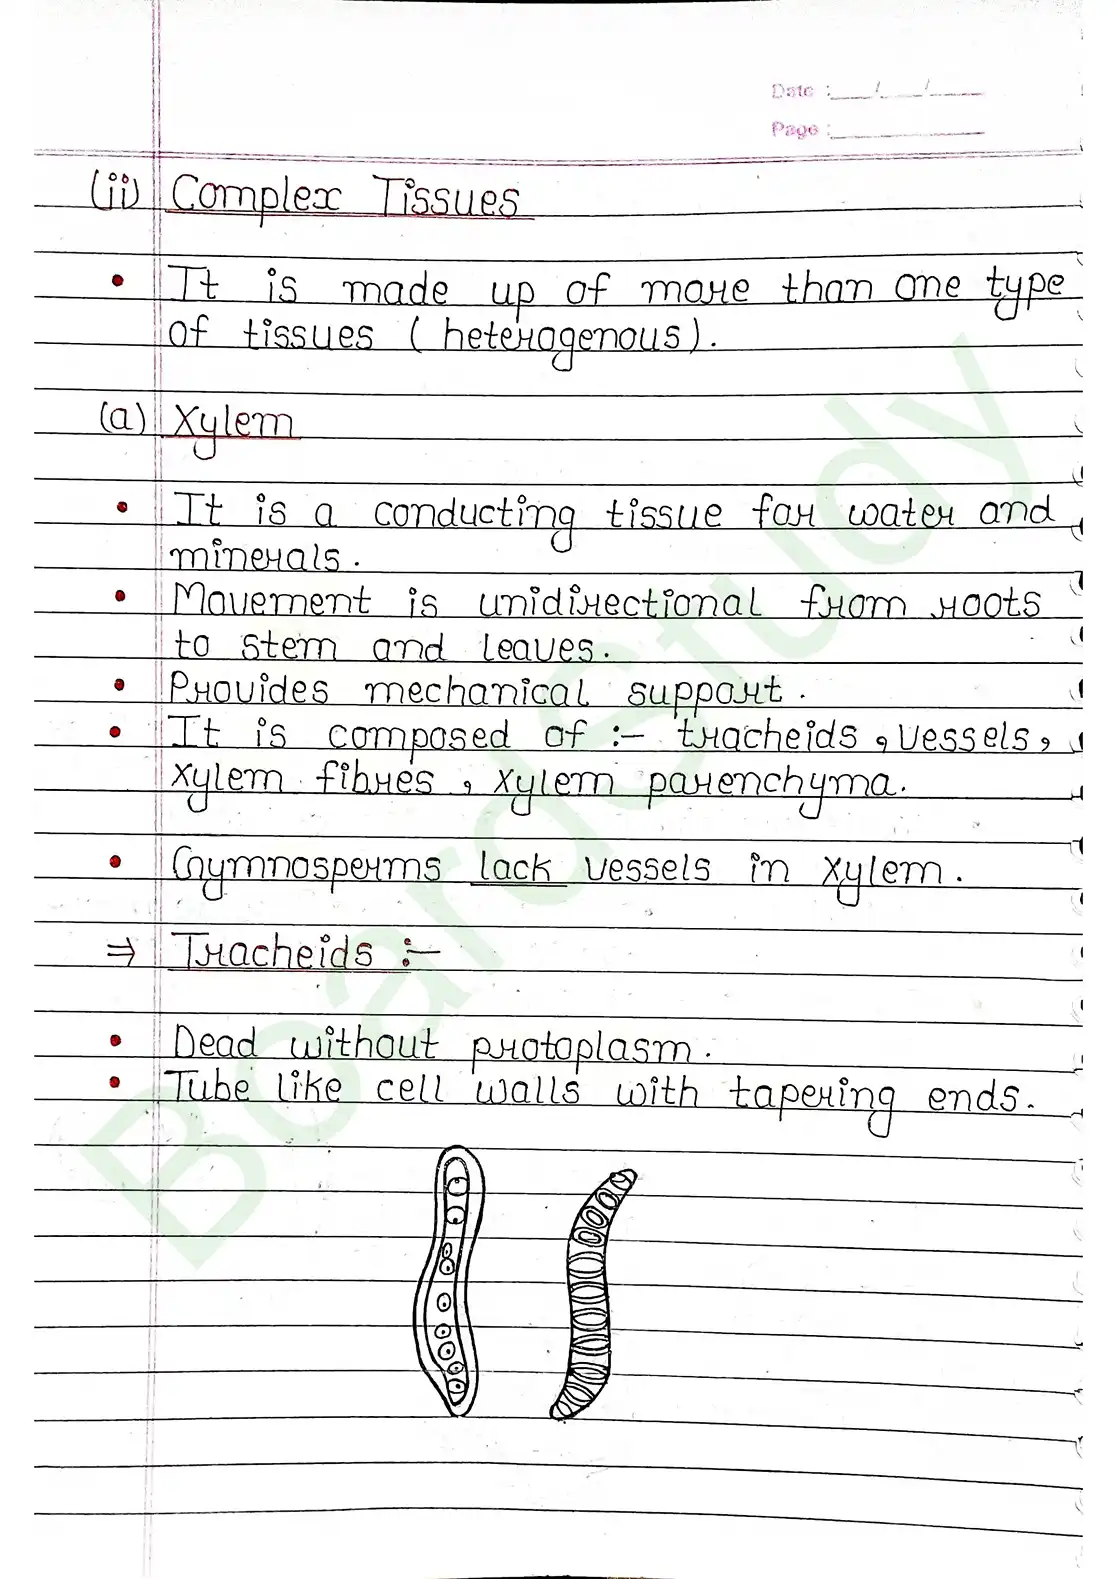 Date :___/___/___
Page :___
(ii) Complex Tissues
• It is made up of more than one type
of tissues (heterogenous).
(a) Xylem
• It is a conducting tissue for water and
minerals.
• Movement is unidirectional from roots
to stem and leaves.
• Provides mechanical support.
• It is composed of :- tracheids, vessels,
xylem fibres, xylem parenchyma.
• Gymnosperms lack vessels in xylem.
⇒ Tracheids :-
• Dead without protoplasm.
• Tube like cell walls with tapering ends.
BoardStudy